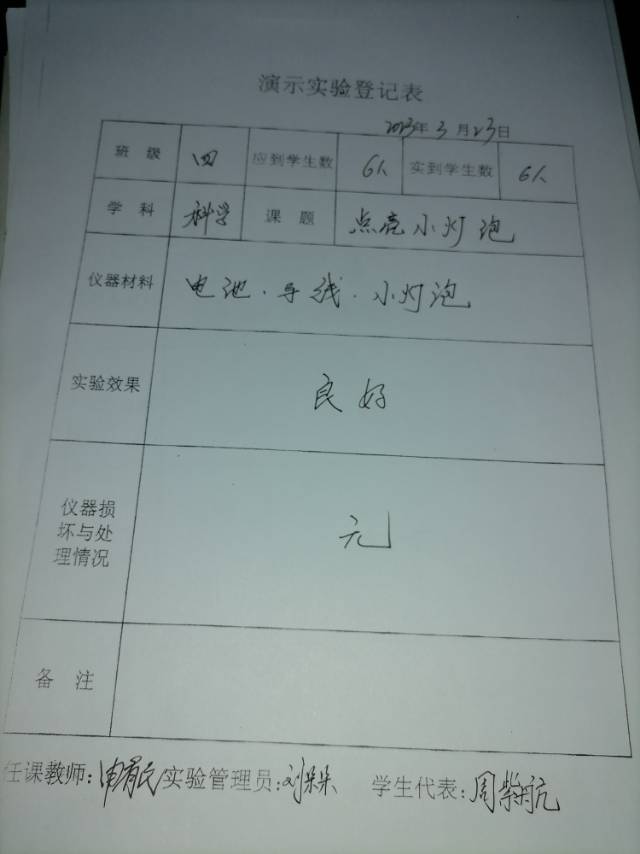 演示实验登记表
2023年3月23日
班级 四 应到学生数 6人 实到学生数 6人
学科 科学 课题 点亮小灯泡
仪器材料 电池.导线.小灯泡
实验效果 良好
仪器损坏与处理情况 元
备注
任课教师: 实验管理员:刘朵朵 学生代表:周紫航